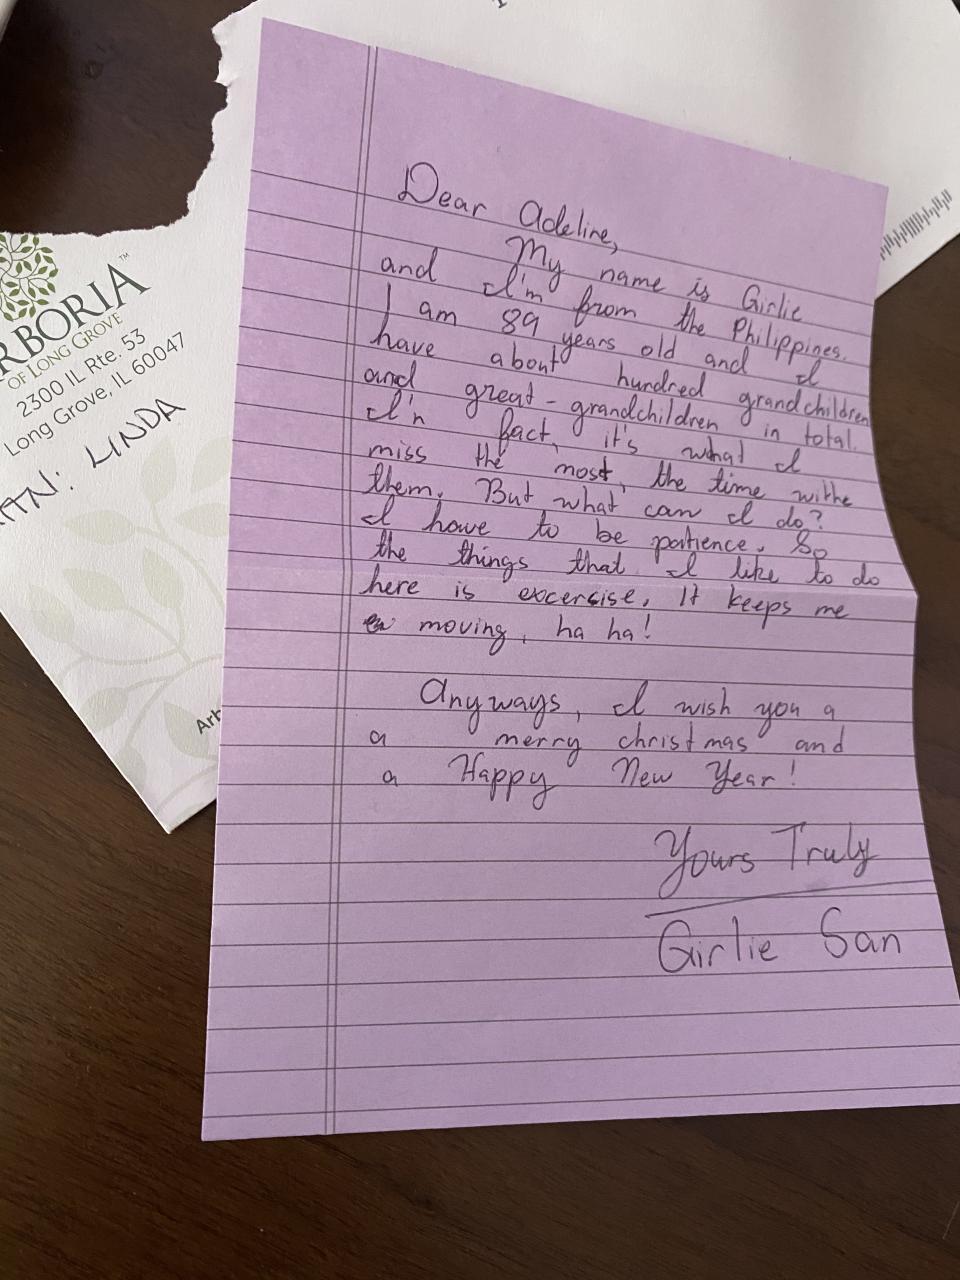 RBORIA™
OF LONG GROVE
2300 IL Rte. 53
Long Grove, IL 60047
AN: LINDA
Arb
Dear Adeline,
My name is Girlie
and I'm from the Philippines.
I am 89 years old and I
have about hundred grandchildren
and great-grandchildren in total.
I'n fact, it's what I
miss the most, the time withe
them. But what can I do?
I have to be patience. So
the things that I like to do
here is excersise. It keeps me
moving, ha ha!
Anyways, I wish you a
a merry christmas and
a Happy New Year!
Yours Truly
Girlie San